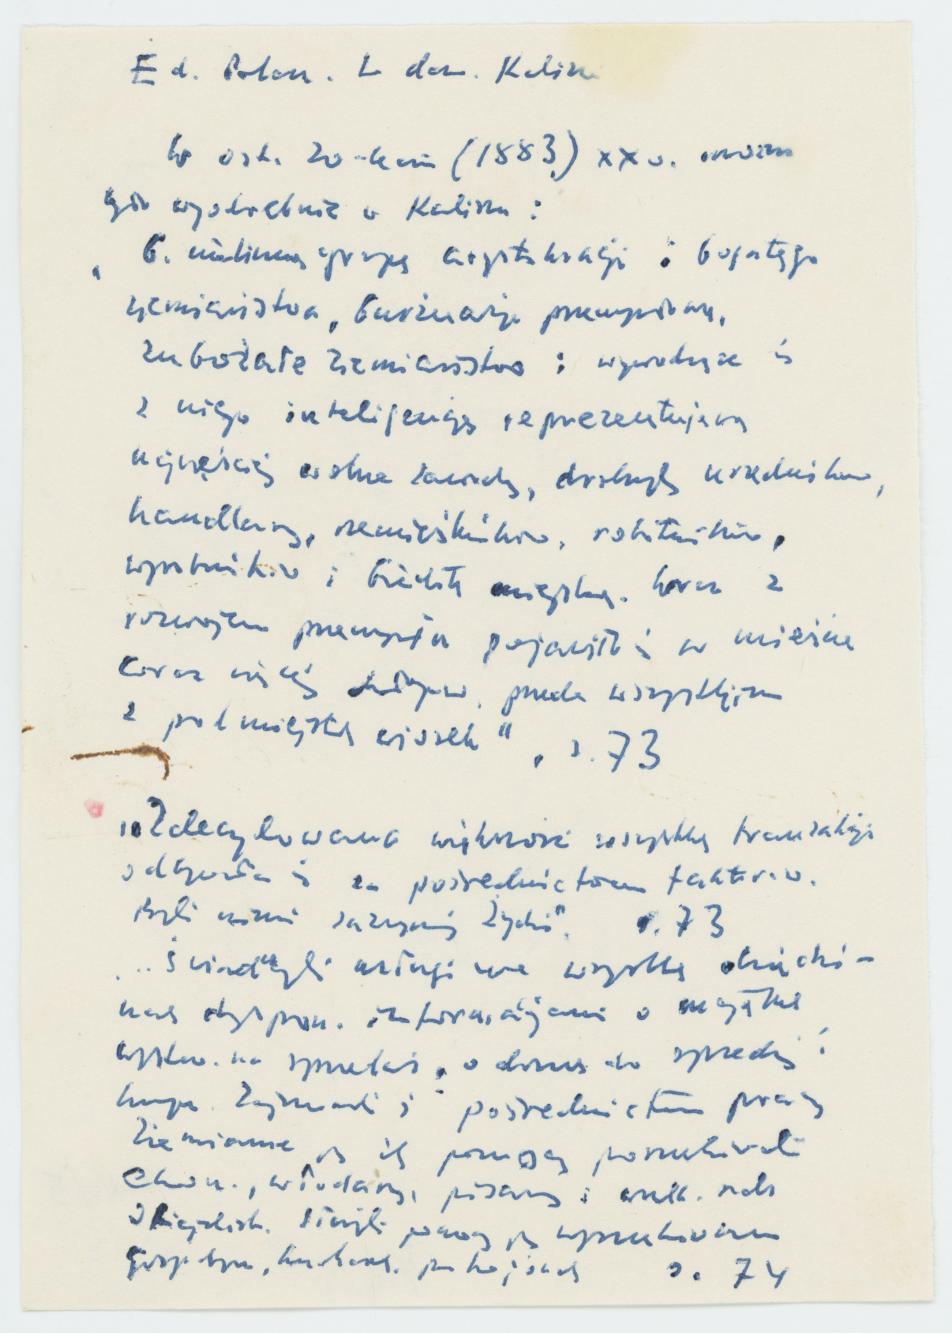 Ed. Polan. W daw. Kalisz
W ost. 20-leciu (1883) XX w. można
było wyodrębnić w Kaliszu :
„ b. nieliczną grupę arystokracji i bogatego
ziemiaństwa, burżuazję przemysłową,
zubożałe ziemiaństwo i wywodzące się
z niego inteligencję reprezentującą
najczęściej wolne zawody, drobnych urzędników,
handlarzy, rzemieślników, robotników,
wyrobników i biedotę miejską. Wraz z
rozwojem przemysłu pojawiło się w mieście
coraz więcej przede wszystkim
z podmiejskich wiosek", s. 73
„Zdecydowana większość wszystkich transakcji
odbywała się za pośrednictwem faktorów.
Byli nimi zazwyczaj Żydzi". s. 73
... Świadczyli usługi we wszystkich dziedzi-
nach dyspon. informacjami o majątku
wystaw. na sprzedaż, o domu do sprzedaży i
kupna. Zajmowali się pośrednictwem pracy
Ziemianie za ich pomocą poszukiwali
ekon., włodarzy, pisarzy i
Służyli pomocą przy wyszukiwaniu
gospodyń, kucharek, pokojówek s. 74